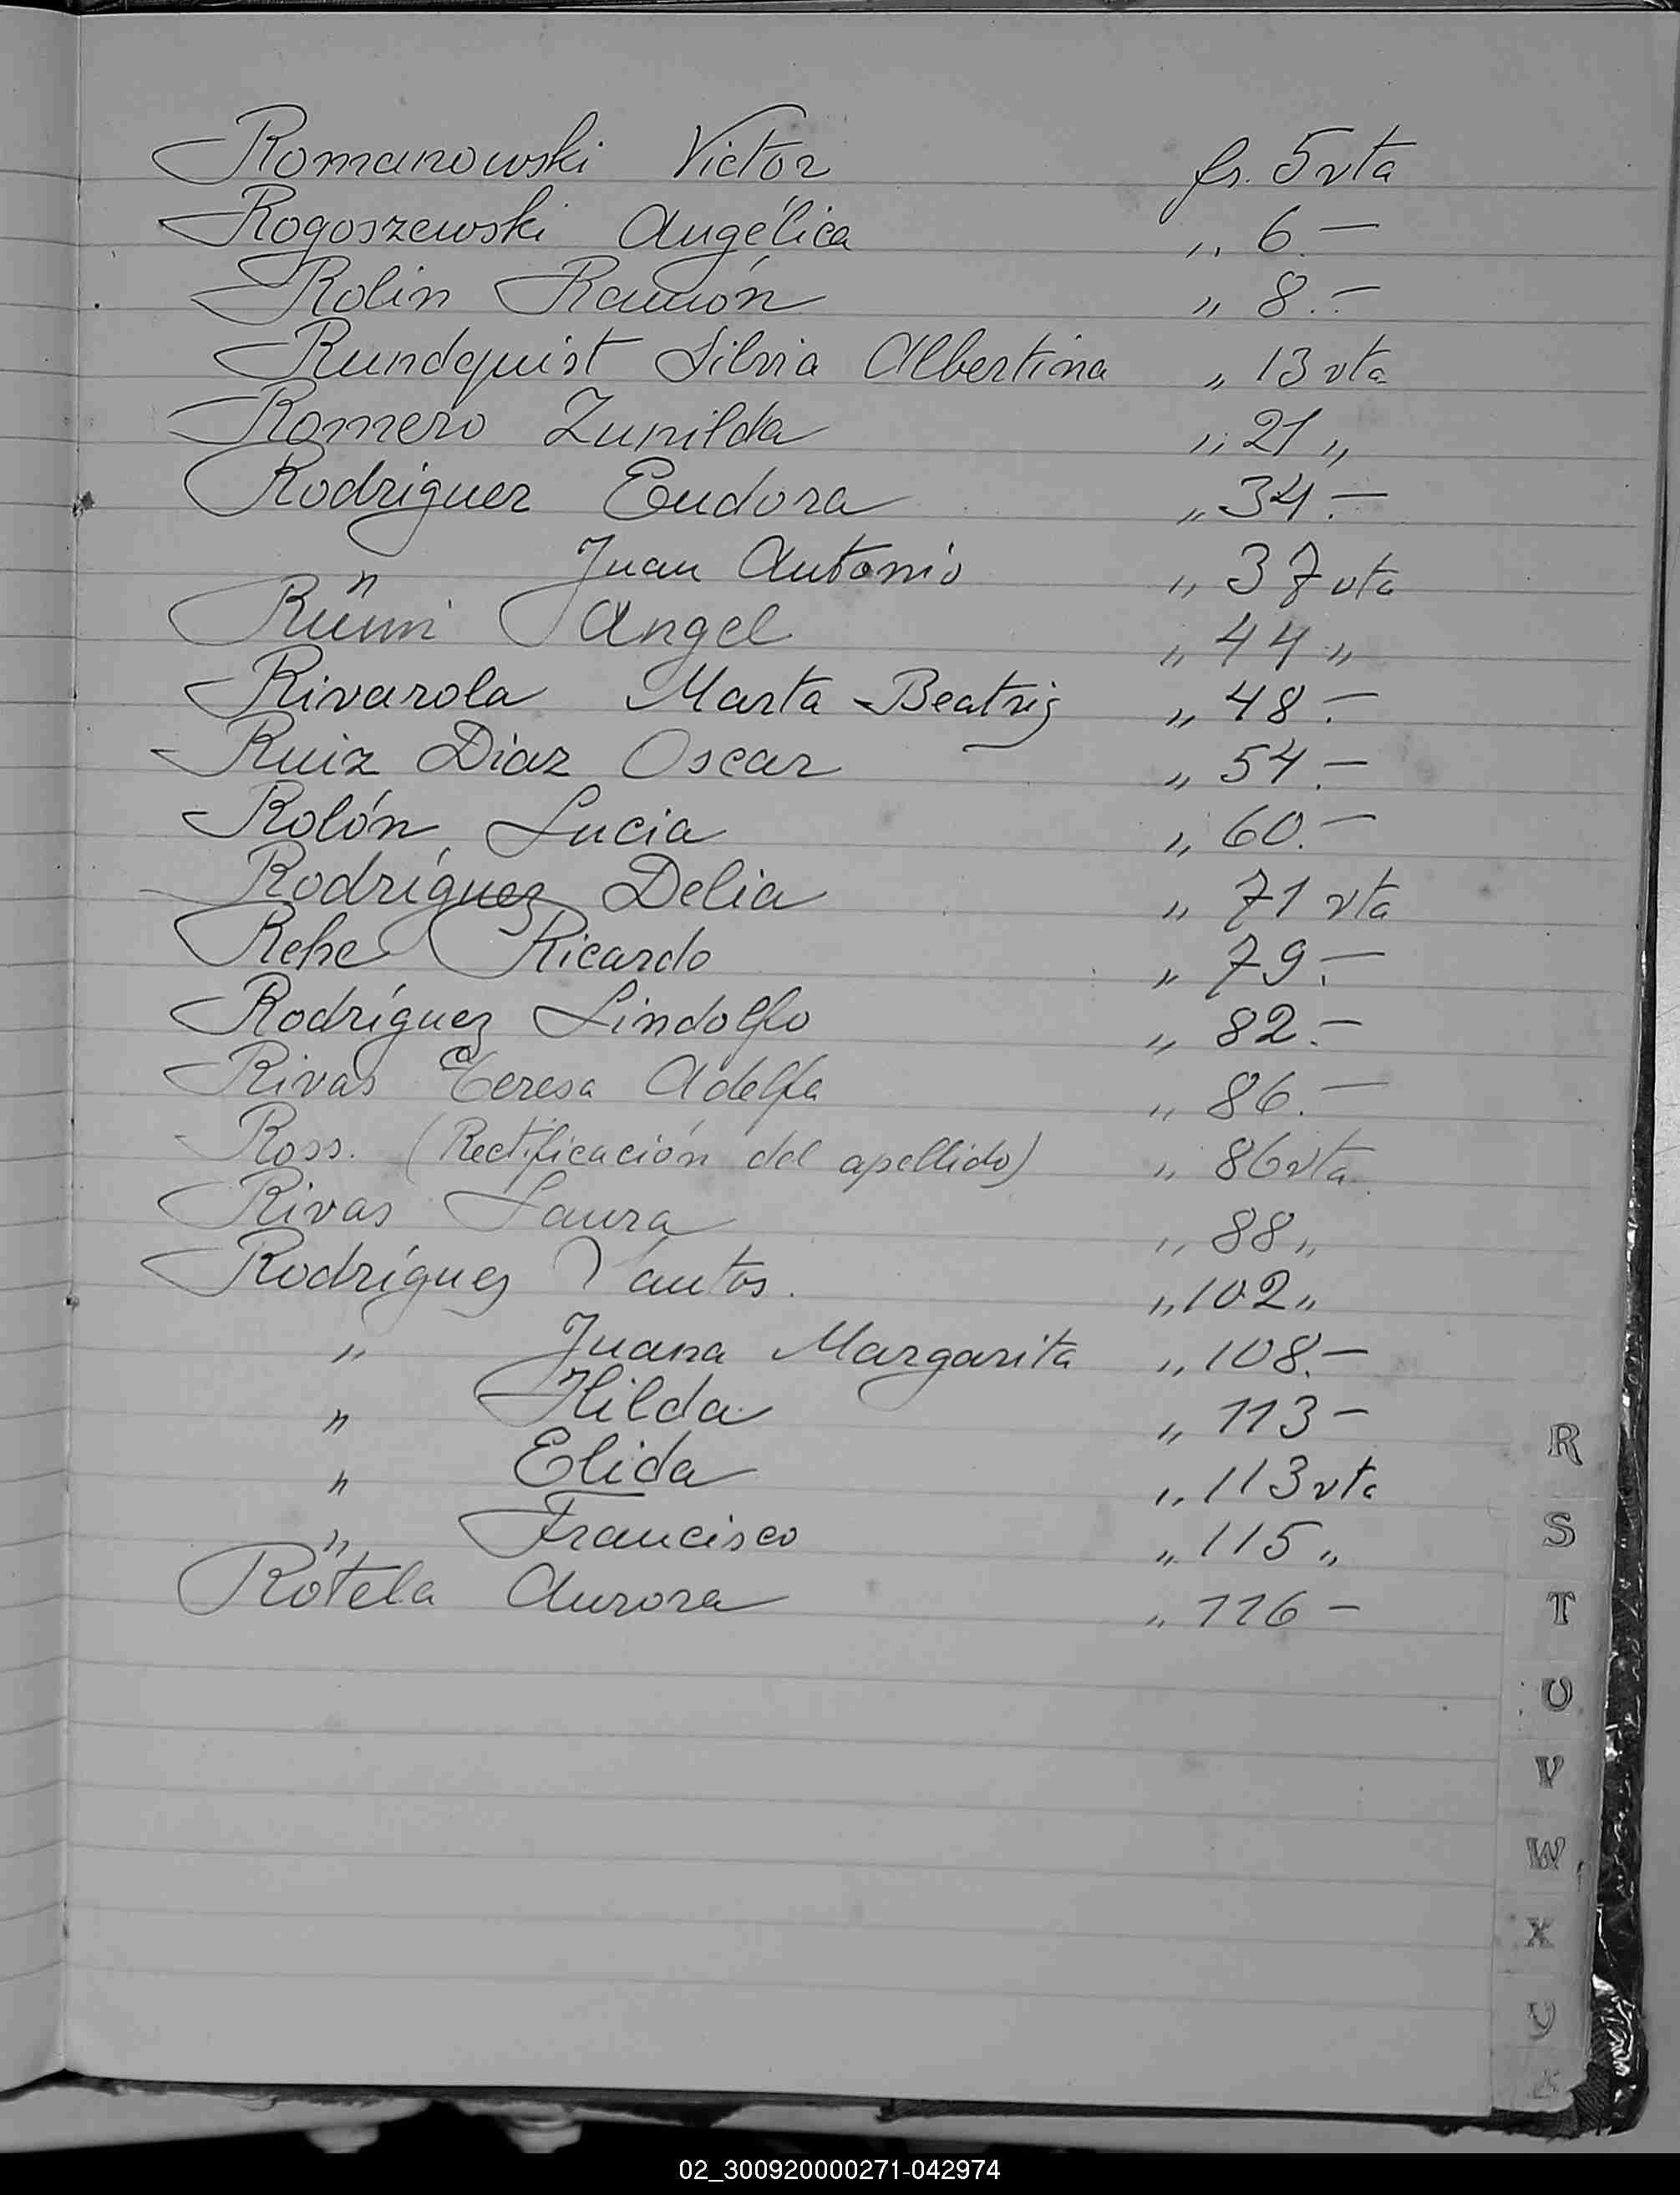 Romanowski Victor fs. 5 vta
Rogoszewski Angélica „ 6.—
Rolin Ramón „ 8.—
Rundquist Silvia Albertina „ 13 vta
Romero Zunilda „ 21 „
Rodriguez Eudora „ 34.—
" Juan Antonio „ 37 vta
Angel „ 44 „
Rivarola Marta Beatriz „ 48.—
Ruiz Diaz Oscar „ 54.—
Rolón Lucia „ 60.—
Rodríguez Delia „ 71 vta
Rehe Ricardo „ 79.—
Rodríguez Lindolfo „ 82.—
Rivas Teresa Adelfa „ 86.—
Ross. (Rectificación del apellido) „ 86 vta
Rivas Laura „ 88 „
Rodríguez Santos. „ 102 „
" Juana Margarita „ 108.—
" Hilda „ 113 —
" Elida „ 113 vta
" Francisco „ 115 „
Rotela Aurora „ 116 —
R
S
T
U
V
W
X
Y
Z
02_300920000271-042974